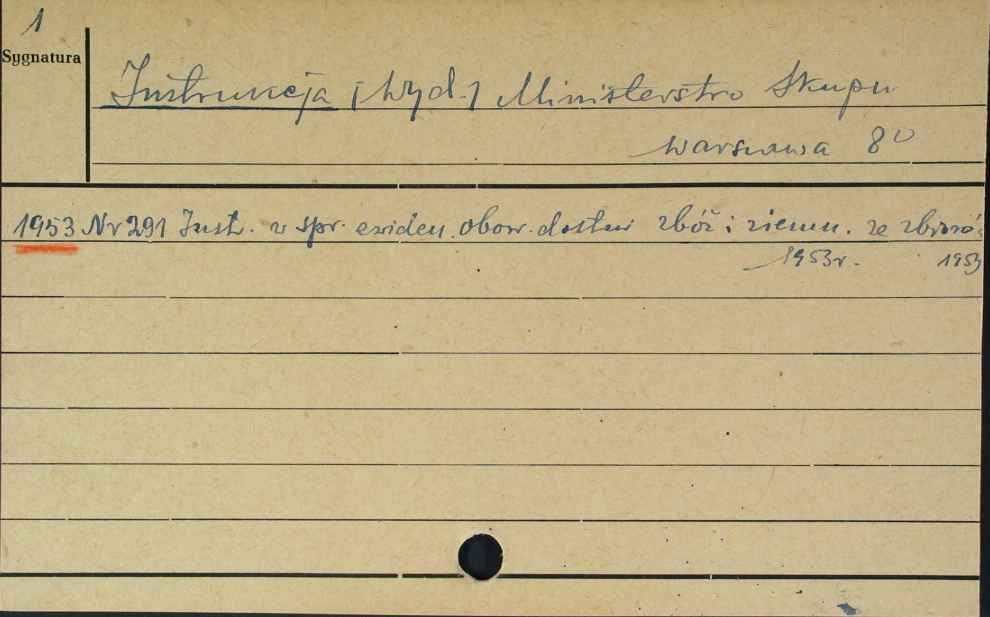 1
Sygnatura
Instrukcja [Wyd.] Ministerstwo Skupu
Warszawa 8⁰
1953 Nr 291 Instr. w spr. ewiden. obow. dostaw zbóż i ziemn. ze zbiorów
1953r. 1953